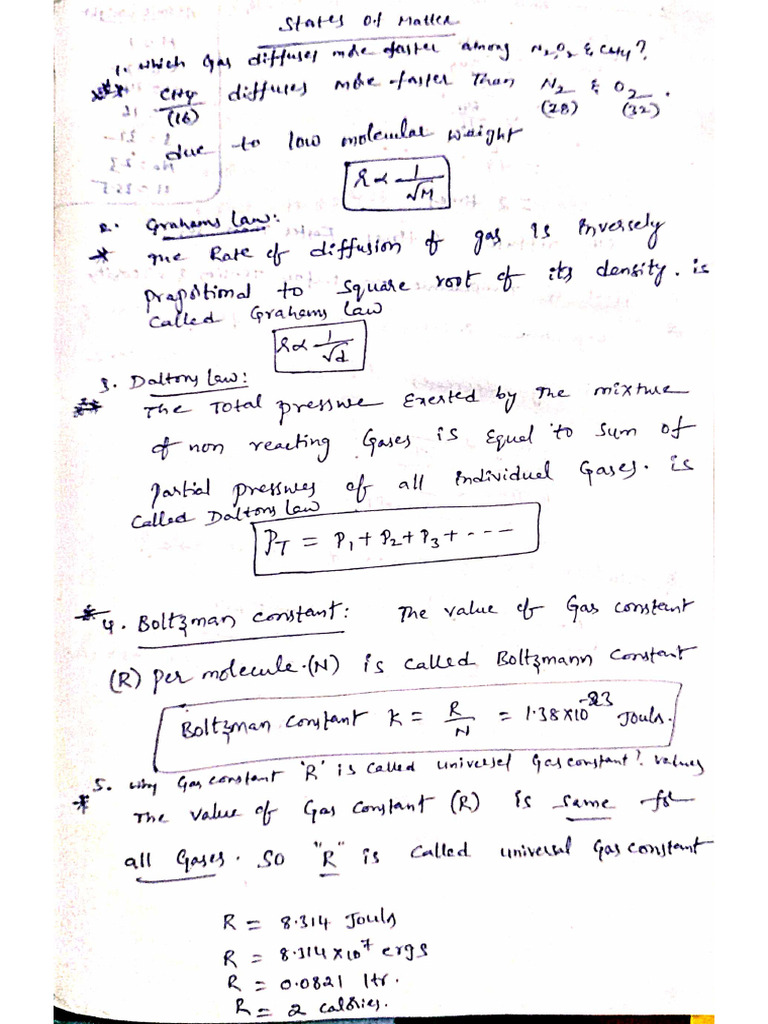 States Of Matter
1. Which Gas diffuses more faster among N₂,O₂ & CH₄?
*** CH₄ diffuses more faster Than N₂ & O₂.
(16) (28) (32)
due to low molecular weight
r ∝ 1/√M
2. Grahams Law:
* The Rate of diffusion of gas is Inversely
propotional to square root of its density. is
called Grahams Law
r ∝ 1/√d
3. Daltons Law:
** The Total pressure Exerted by The mixture
of non reacting Gases is Equal to sum of
partial pressures of all individual Gases. is
called Daltons Law
P_T = P₁ + P₂ + P₃ + - - -
* 4. Boltzman constant: The value of Gas constant
(R) per molecule.(N) is called Boltzmann Constant
Boltzman constant K = R/N = 1.38×10⁻²³ Jouls.
5. Why Gas constant 'R' is called universel Gas constant? values
* The value of Gas Constant (R) is same for
all Gases. So "R" is called universal Gas constant
R = 8.314 Jouls
R = 8.314×10⁷ ergs
R = 0.0821 ltr.
R = 2 calories.